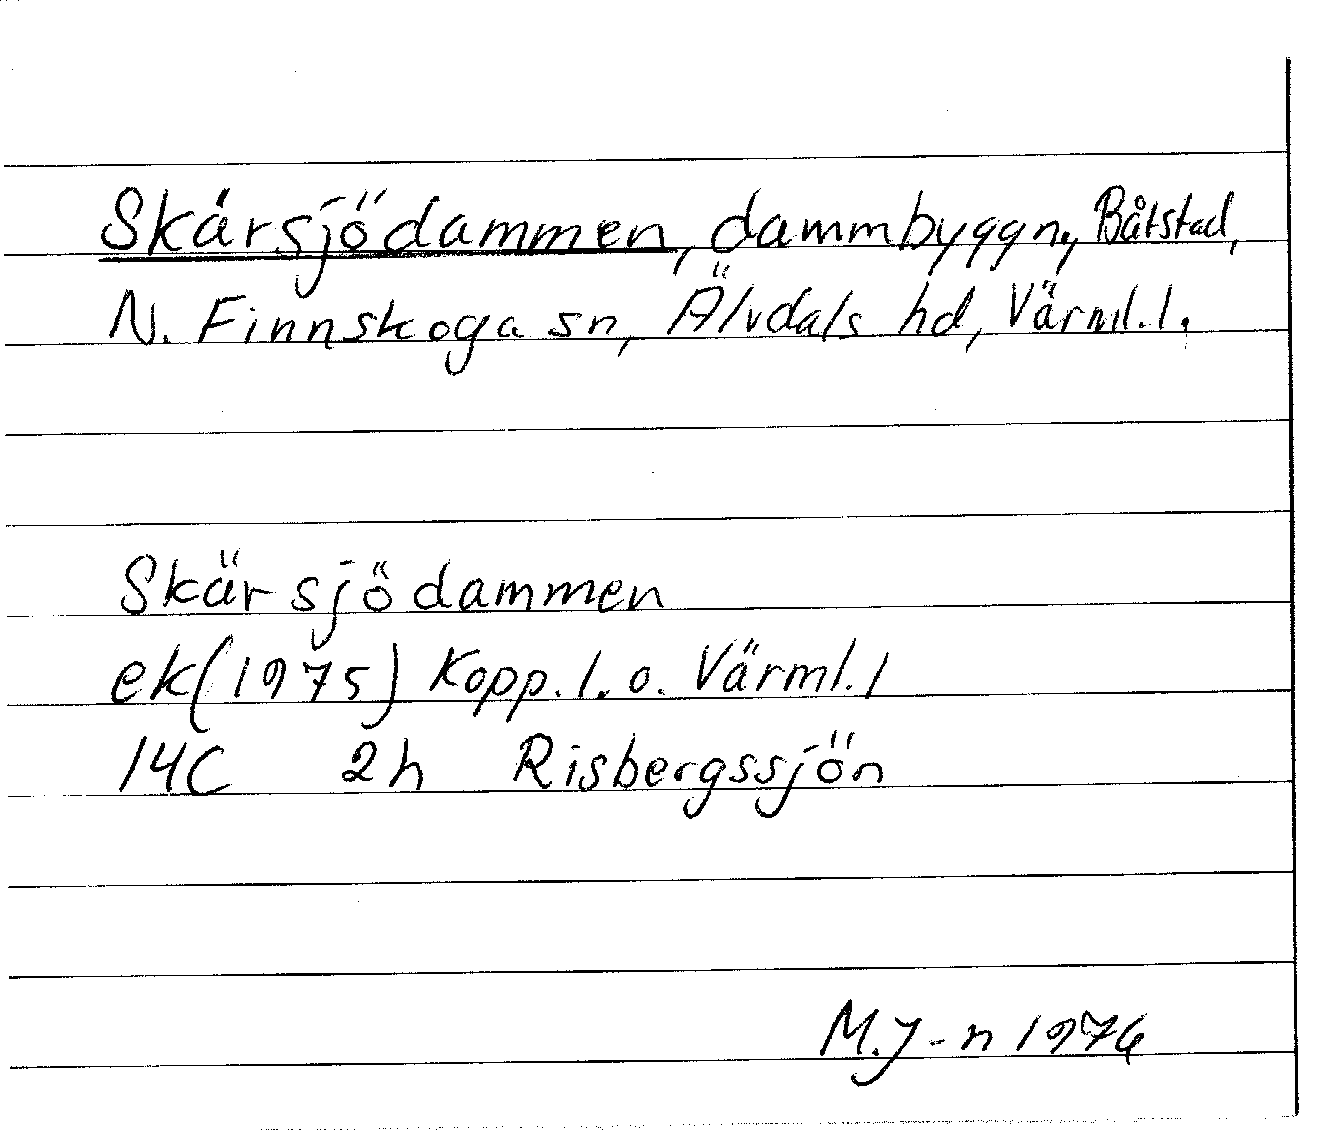 Skärsjödammen, dammbyggn., Båtstad,
N. Finnskoga sn, Älvdals hd, Värml. l.
Skärsjödammen
ek (1975) Kopp. l. o. Värml. l
14C 2h Risbergssjön
M.J-n 1976